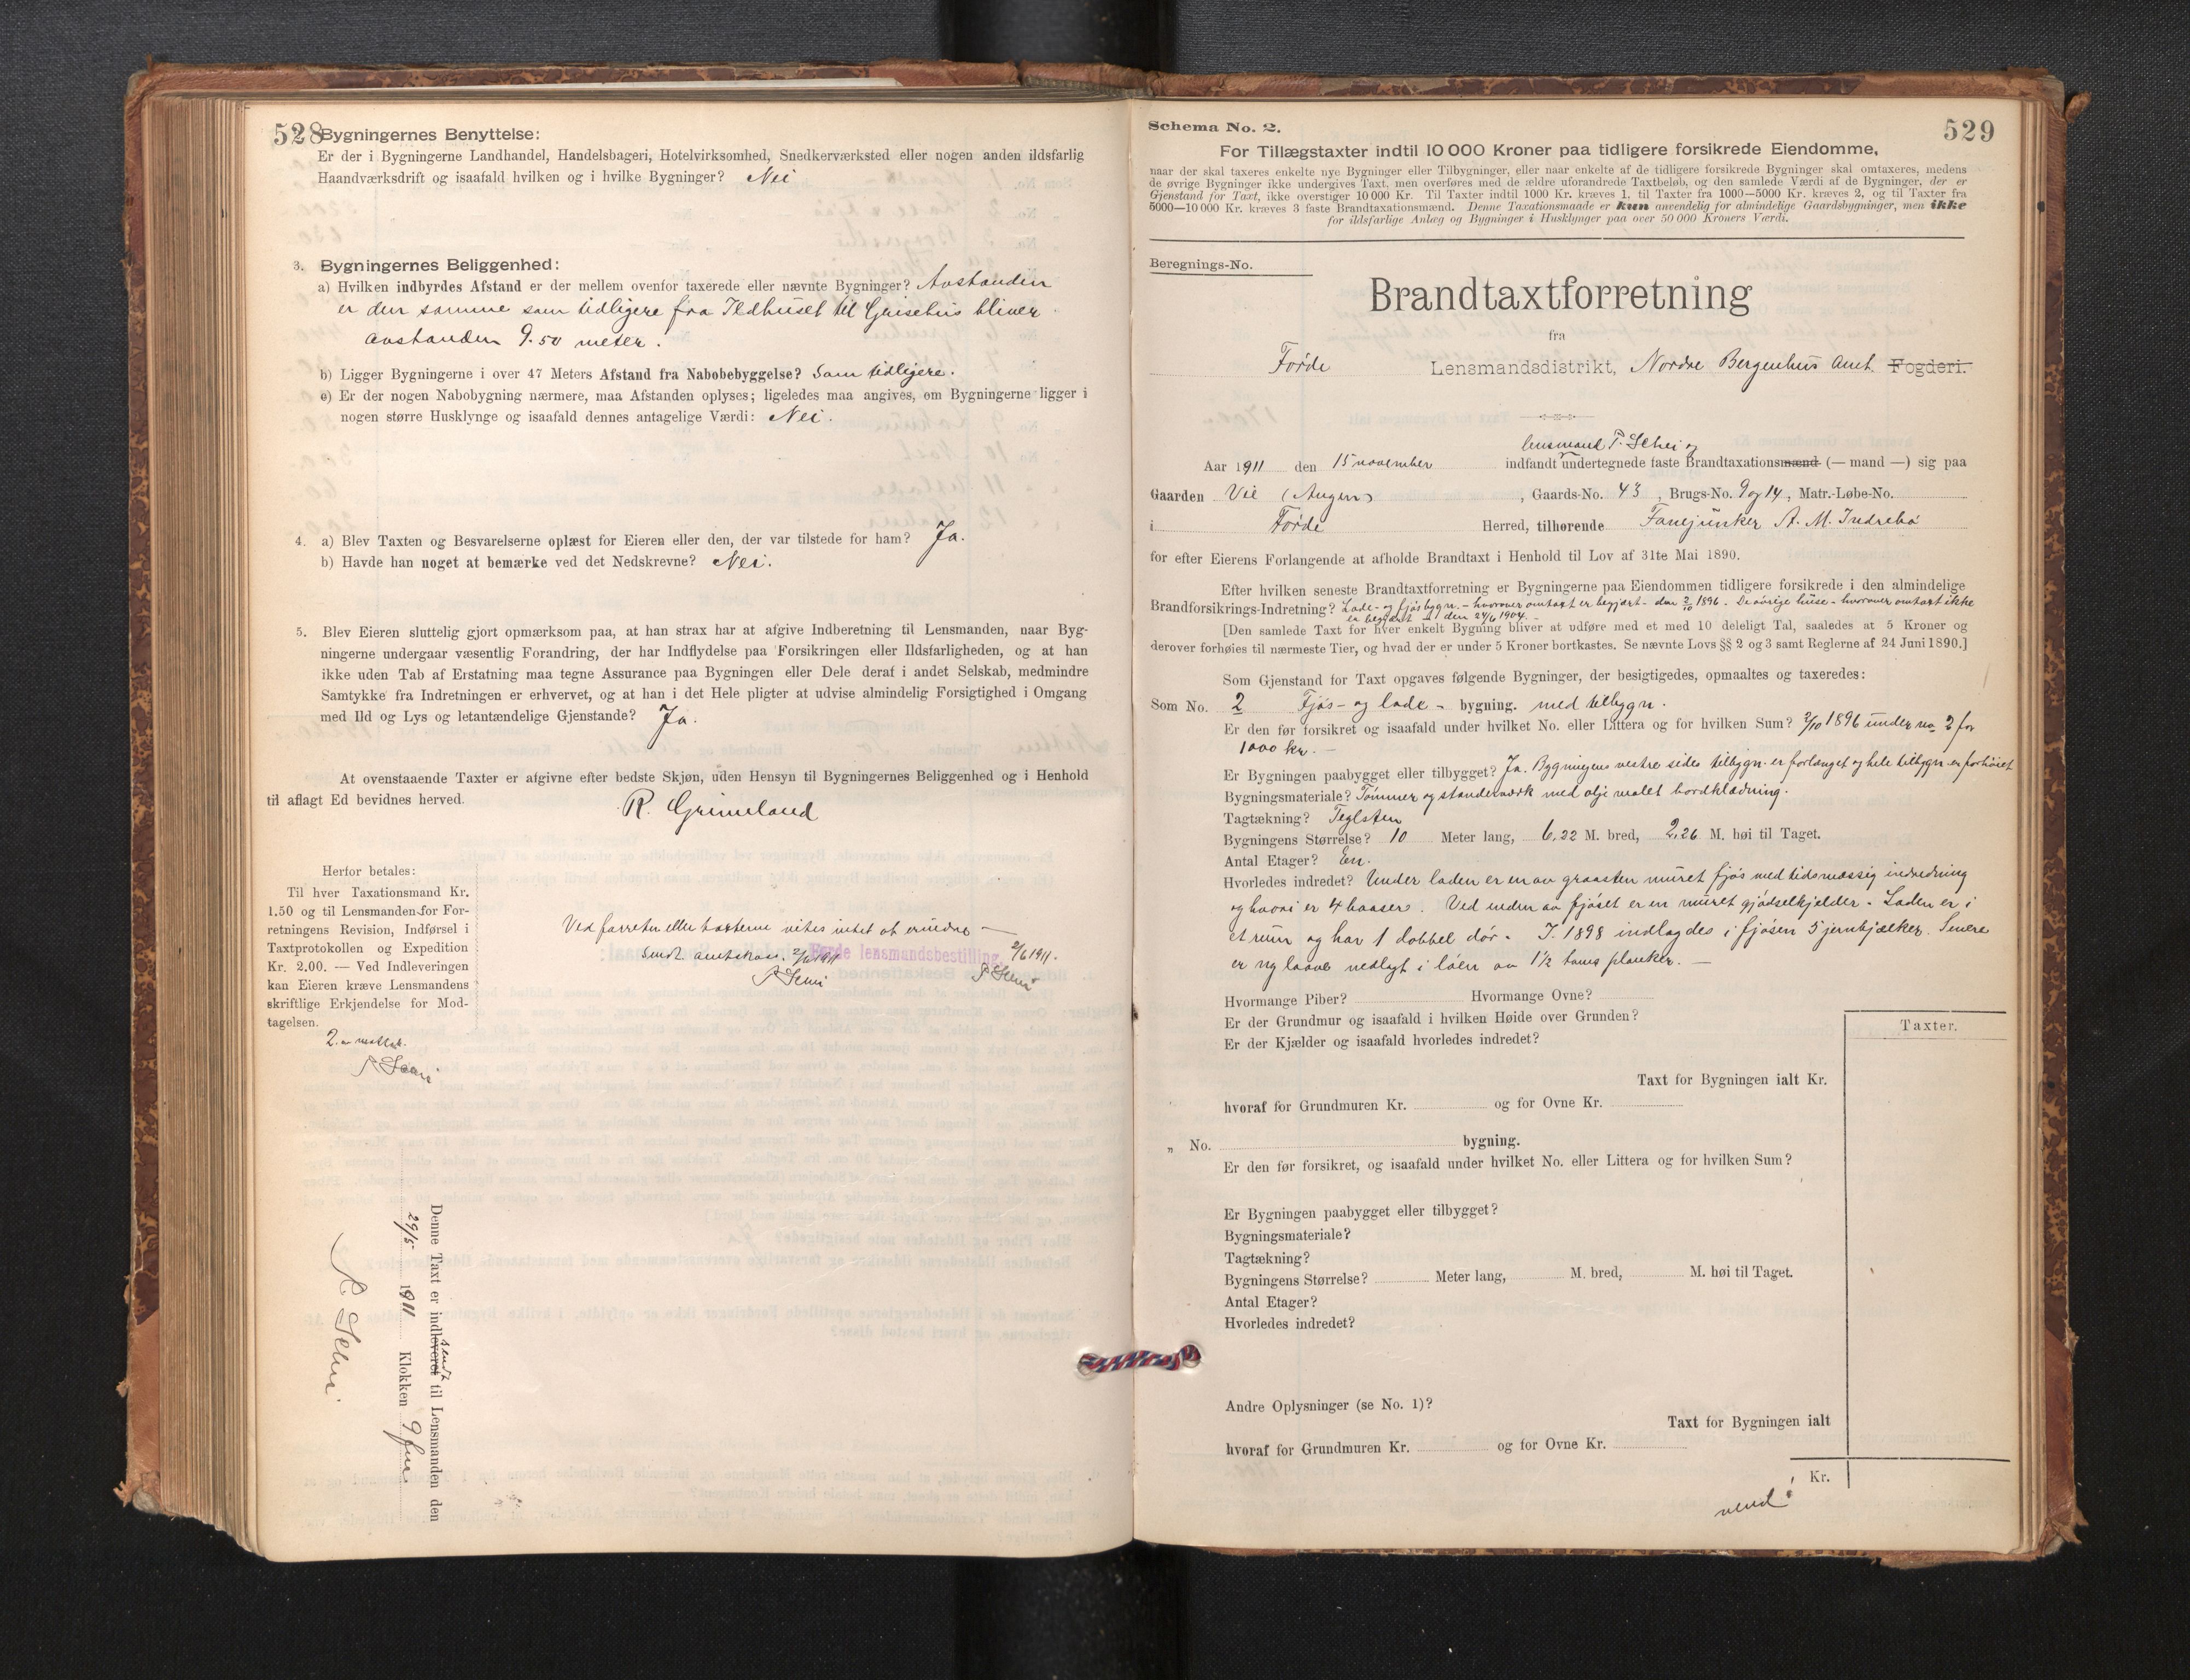 528
Bygningernes Benyttelse:
Er der i Bygningerne Landhandel, Handelsbageri, Hotelvirksomhed, Snedkerværksted eller nogen anden ildsfarlig
Haandværksdrift og isaafald hvilken og i hvilke Bygninger? Nei
3. Bygningernes Beliggenhed:
a) Hvilken indbyrdes Afstand er der mellem ovenfor taxerede eller nævnte Bygninger? Avstanden
er den samme som tidligere fra Ildhuset til Grisehus bliver
avstanden 9.50 meter.
b) Ligger Bygningerne i over 47 Meters Afstand fra Nabobebyggelse? Som tidligere.
c) Er der nogen Nabobygning nærmere, maa Afstanden oplyses; ligeledes maa angives, om Bygningerne ligger i
nogen større Husklynge og isaafald dennes antagelige Værdi: Nei.
4. a) Blev Taxten og Besvarelserne oplæst for Eieren eller den, der var tilstede for ham? Ja.
b) Havde han noget at bemærke ved det Nedskrevne? Nei.
5. Blev Eieren sluttelig gjort opmærksom paa, at han strax har at afgive Indberetning til Lensmanden, naar Byg-
ningerne undergaar væsentlig Forandring, der har Indflydelse paa Forsikringen eller Ildsfarligheden, og at han
ikke uden Tab af Erstatning maa tegne Assurance paa Bygningen eller Dele deraf i andet Selskab, medmindre
Samtykke fra Indretningen er erhvervet, og at han i det Hele pligter at udvise almindelig Forsigtighed i Omgang
med Ild og Lys og letantændelige Gjenstande? Ja.
At ovenstaaende Taxter er afgivne efter bedste Skjøn, uden Hensyn til Bygningernes Beliggenhed og i Henhold
til aflagt Ed bevidnes herved.
R. Grimeland
Herfor betales:
Til hver Taxationsmand Kr.
1.50 og til Lensmanden for For-
retningens Revision, Indførsel i
Taxtprotokollen og Expedition
Kr. 2.00. — Ved Indleveringen
kan Eieren kræve Lensmandens
skriftlige Erkjendelse for Mod-
tagelsen.
Ved forretn eller taxterne vites intet at erindre —
Førde lensmandsbestilling, 2/6 1911.
Sendt amtskass. 2/6 1911
Denne Taxt er indleveret sendt til Lensmanden den
29/5 1911 Klokken 9 fm
529
Schema No. 2.
For Tillægstaxter indtil 10 000 Kroner paa tidligere forsikrede Eiendomme,
naar der skal taxeres enkelte nye Bygninger eller Tilbygninger, eller naar enkelte af de tidligere forsikrede Bygninger skal omtaxeres, medens
de øvrige Bygninger ikke undergives Taxt, men overføres med de ældre uforandrede Taxtbeløb, og den samlede Værdi af de Bygninger, der er
Gjenstand for Taxt, ikke overstiger 10 000 Kr. Til Taxter indtil 1000 Kr. kræves 1, til Taxter fra 1000—5000 Kr. kræves 2, og til Taxter fra
5000—10 000 Kr. kræves 3 faste Brandtaxationsmænd. Denne Taxationsmaade er kun anvendelig for almindelige Gaardsbygninger, men ikke
for ildsfarlige Anlæg og Bygninger i Husklynger paa over 50 000 Kroners Værdi.
Beregnings-No.
Brandtaxtforretning
fra
Førde Lensmandsdistrikt, Nordre Bergenhus Amt. Fogderi.
lensmand P. Schei og
Aar 1911 den 15 november indfandt undertegnede faste Brandtaxationsmænd (— mand —) sig paa
Gaarden Vie (Angen), Gaards-No. 43, Brugs-No. 9 og 14, Matr.-Løbe-No.
i Førde Herred, tilhørende Fanejunker A. M. Indrebø
for efter Eierens Forlangende at afholde Brandtaxt i Henhold til Lov af 31te Mai 1890.
Efter hvilken seneste Brandtaxtforretning er Bygningerne paa Eiendommen tidligere forsikrede i den almindelige
Brandforsikrings-Indretning? Lade- og fjøsbygn. - hvorover omtaxt er begjært - den 2/10 1896. De øvrige huse - hvorover omtaxt ikke
er begjært den 24/6 1904.
[Den samlede Taxt for hver enkelt Bygning bliver at udføre med et med 10 deleligt Tal, saaledes at 5 Kroner og
derover forhøies til nærmeste Tier, og hvad der er under 5 Kroner bortkastes. Se nævnte Lovs §§ 2 og 3 samt Reglerne af 24 Juni 1890.]
Som Gjenstand for Taxt opgaves følgende Bygninger, der besigtigedes, opmaaltes og taxeredes:
Som No. 2 Fjøs- og lade - bygning. med tilbygn.
Er den før forsikret og isaafald under hvilket No. eller Littera og for hvilken Sum? 2/10 1896 under no 2 for
1000 kr. -
Er Bygningen paabygget eller tilbygget? Ja. Bygningens vestre sides tilbygn. er forlænget og hele tilbygn er forhøiet
Bygningsmateriale? Tømmer og standerværk med olje malet bordklædning.
Tagtækning? Teglsten
Bygningens Størrelse? 10 Meter lang, 6,22 M. bred, 2,26 M. høi til Taget.
Antal Etager? En.
Hvorledes indredet? Under laden er en av graasten muret fjøs med tidsmæssig indredning
og hvori er 4 baaser. Ved enden av fjøset er en muret gjødselkjelder. Laden er i
et rum og har 1 dobbel dør. I 1898 indlagdes i fjøsen 5 jernbjælker. Senere
er ny laave nedlagt i løen av 1½ toms planker. —
Hvormange Piber? Hvormange Ovne?
Er der Grundmur og isaafald i hvilken Høide over Grunden?
Er der Kjælder og isaafald hvorledes indredet?
Taxter.
Taxt for Bygningen ialt Kr.
hvoraf for Grundmuren Kr. og for Ovne Kr.
„ No. bygning.
Er den før forsikret, og isaafald under hvilket No. eller Littera og for hvilken Sum?
Er Bygningen paabygget eller tilbygget?
Bygningsmateriale?
Tagtækning?
Bygningens Størrelse? Meter lang, M. bred, M. høi til Taget.
Antal Etager?
Hvorledes indredet?
Andre Oplysninger (se No. 1)?
Taxt for Bygningen ialt
hvoraf for Grundmuren Kr. og for Ovne Kr.
Kr.
vend!